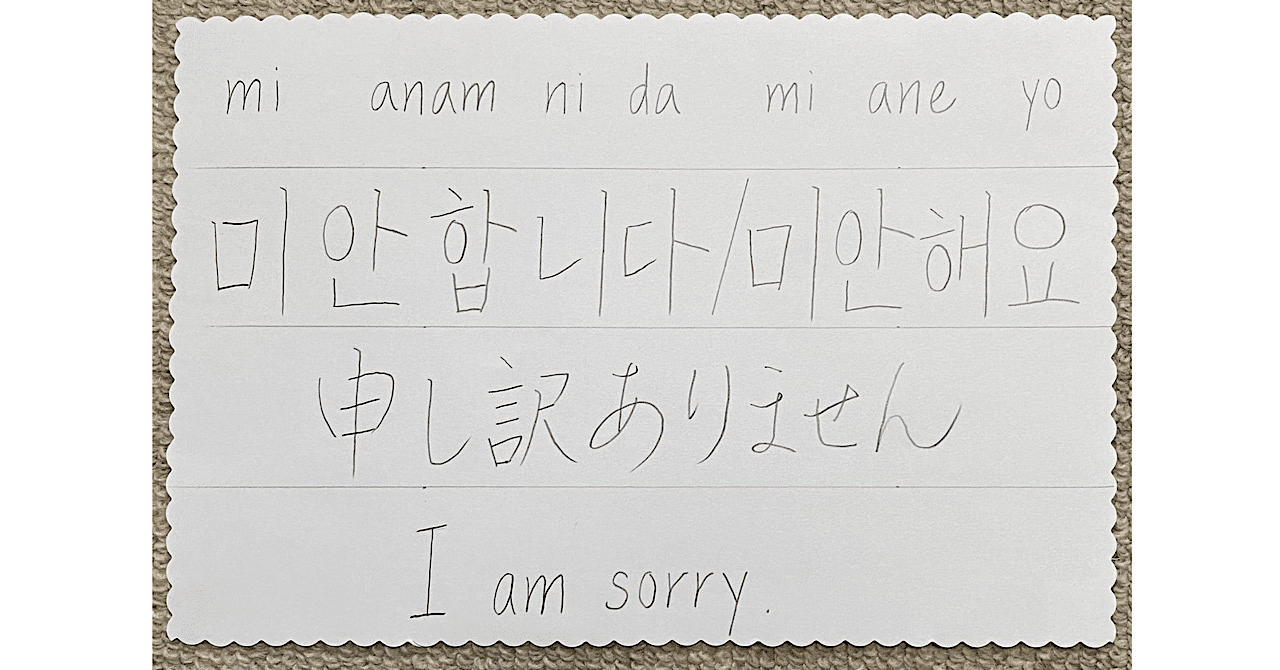 mi anam ni da mi ane yo
미안합니다/미안해요
申し訳ありません
I am sorry.